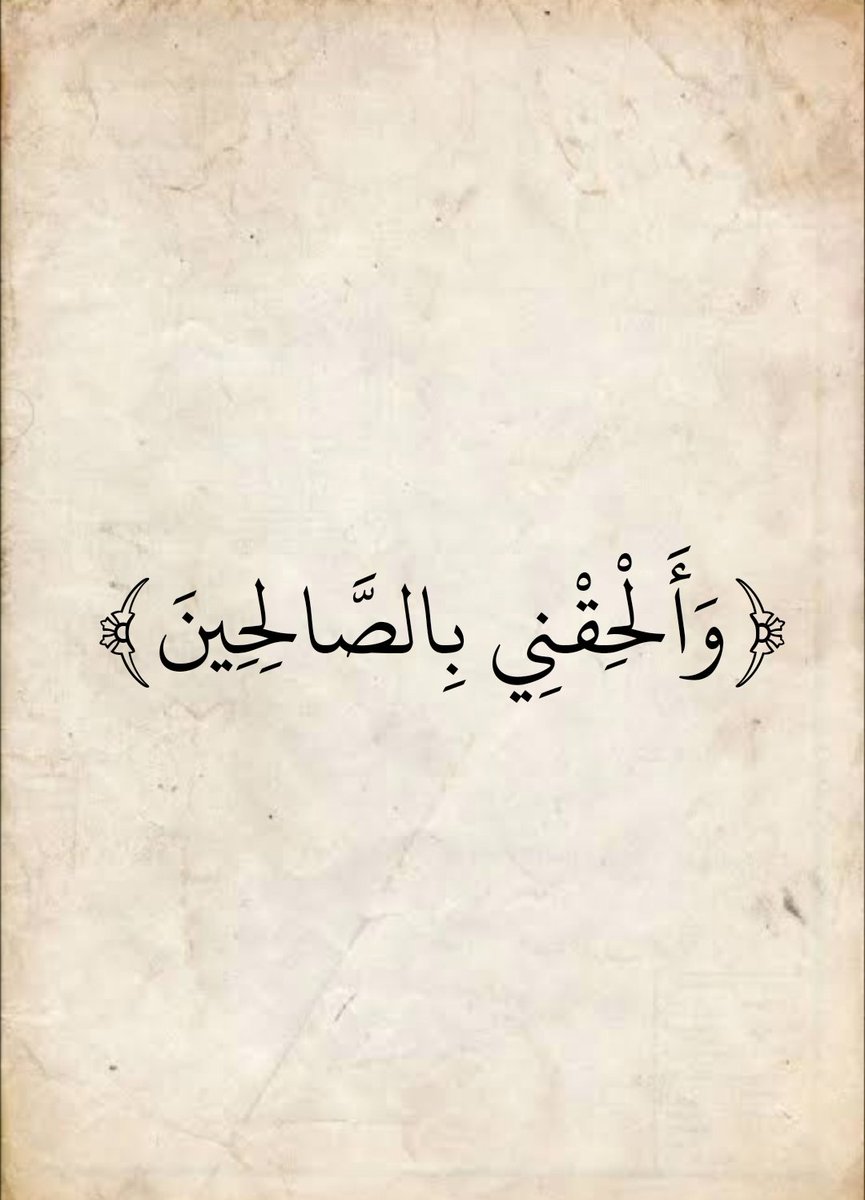 ﴿وَأَلْحِقْنِي بِالصَّالِحِينَ﴾